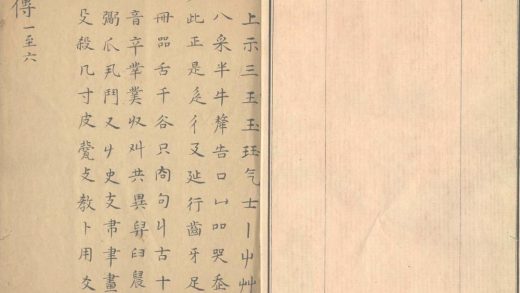 上示三王玉珏气士丨屮艸
八釆半牛犛告口凵吅哭
此正是辵彳廴㢟行齒牙足
冊品舌千谷只㕯句丩古十
音䇂丵菐収𠬜共異舁臼晨
弼爪丮鬥又𠂇史支𦘒聿畫
殳殺几寸皮㼱攴教卜用爻
傳一至六